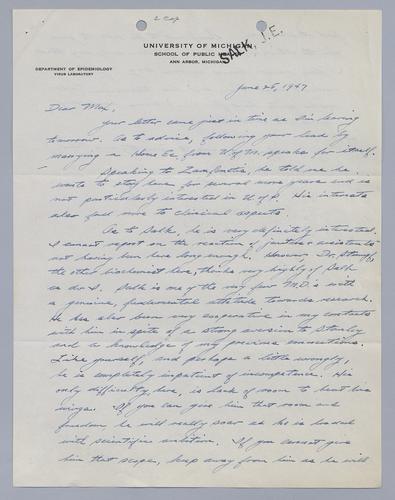 2 Cop
SALK, J.E.
UNIVERSITY OF MICHIGAN
SCHOOL OF PUBLIC
ANN ARBOR, MICHIGAN
DEPARTMENT OF EPIDEMIOLOGY
VIRUS LABORATORY
June 25, 1947
Dear Max,
Your letter came just in time as I'm leaving
tomorrow. As to advice, following your lead by
marrying a Home Ec. from U of M. speaks for itself.
Speaking to he told me he
wants to stay here for several more years and is
not particularly interested in U of P. His interests
also fall more to clinical aspects.
As to Salk, he is very definitely interested.
I cannot report on the reaction of junior assistants
not having been here long enough. However, Dr.
the other biochemist here, thinks very highly of Salk
as do I. Salk is one of the very few M.D.'s with
a genuine, fundamental attitude towards research.
He has also been very cooperative in my contacts
with him in spite of a strong aversion to Stanley
and a knowledge of my previous connections.
Like yourself, and perhaps a little wrongly,
he is completely impatient of incompetence. His
only difficulty, here, is lack of room to beat his
wings. If you can give him that room and
freedom he will really soar as he is loaded
with scientific ambition. If you cannot give
him that scope, keep away from him as he will